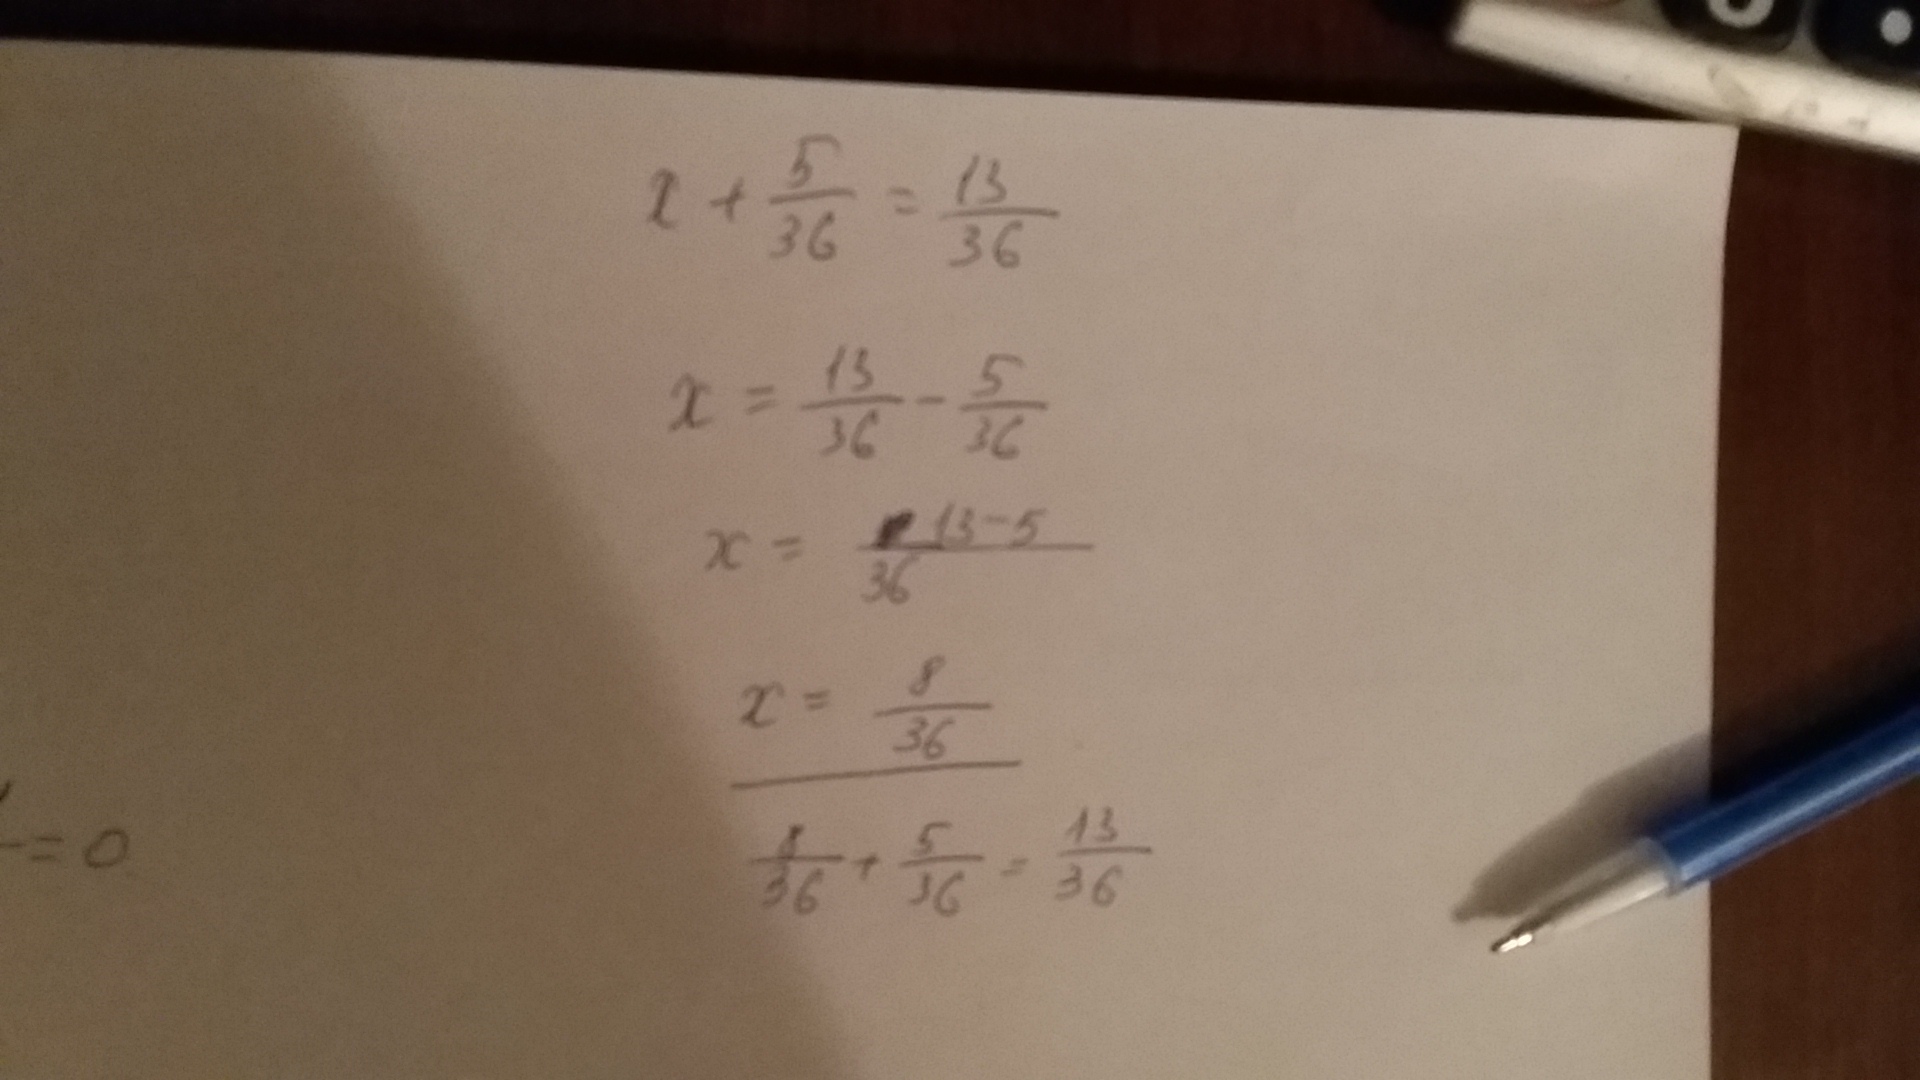 x + 5/36 = 13/36
x = 13/36 - 5/36
x = 13-5/36
x = 8/36
8/36 + 5/36 = 13/36
= 0